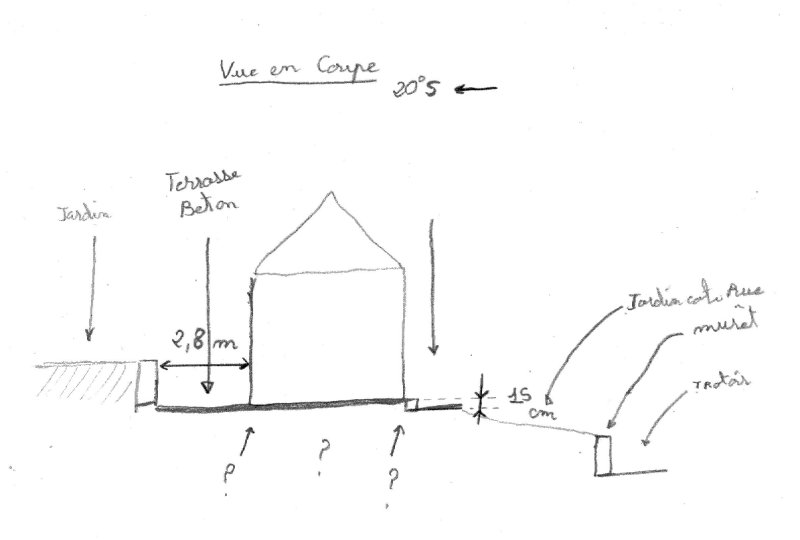 Vue en Coupe
20°S
Terrasse
Beton
Jardin
2,8 m
Jardin coté Rue
murêt
TROTOIR
15
cm
?
?
?